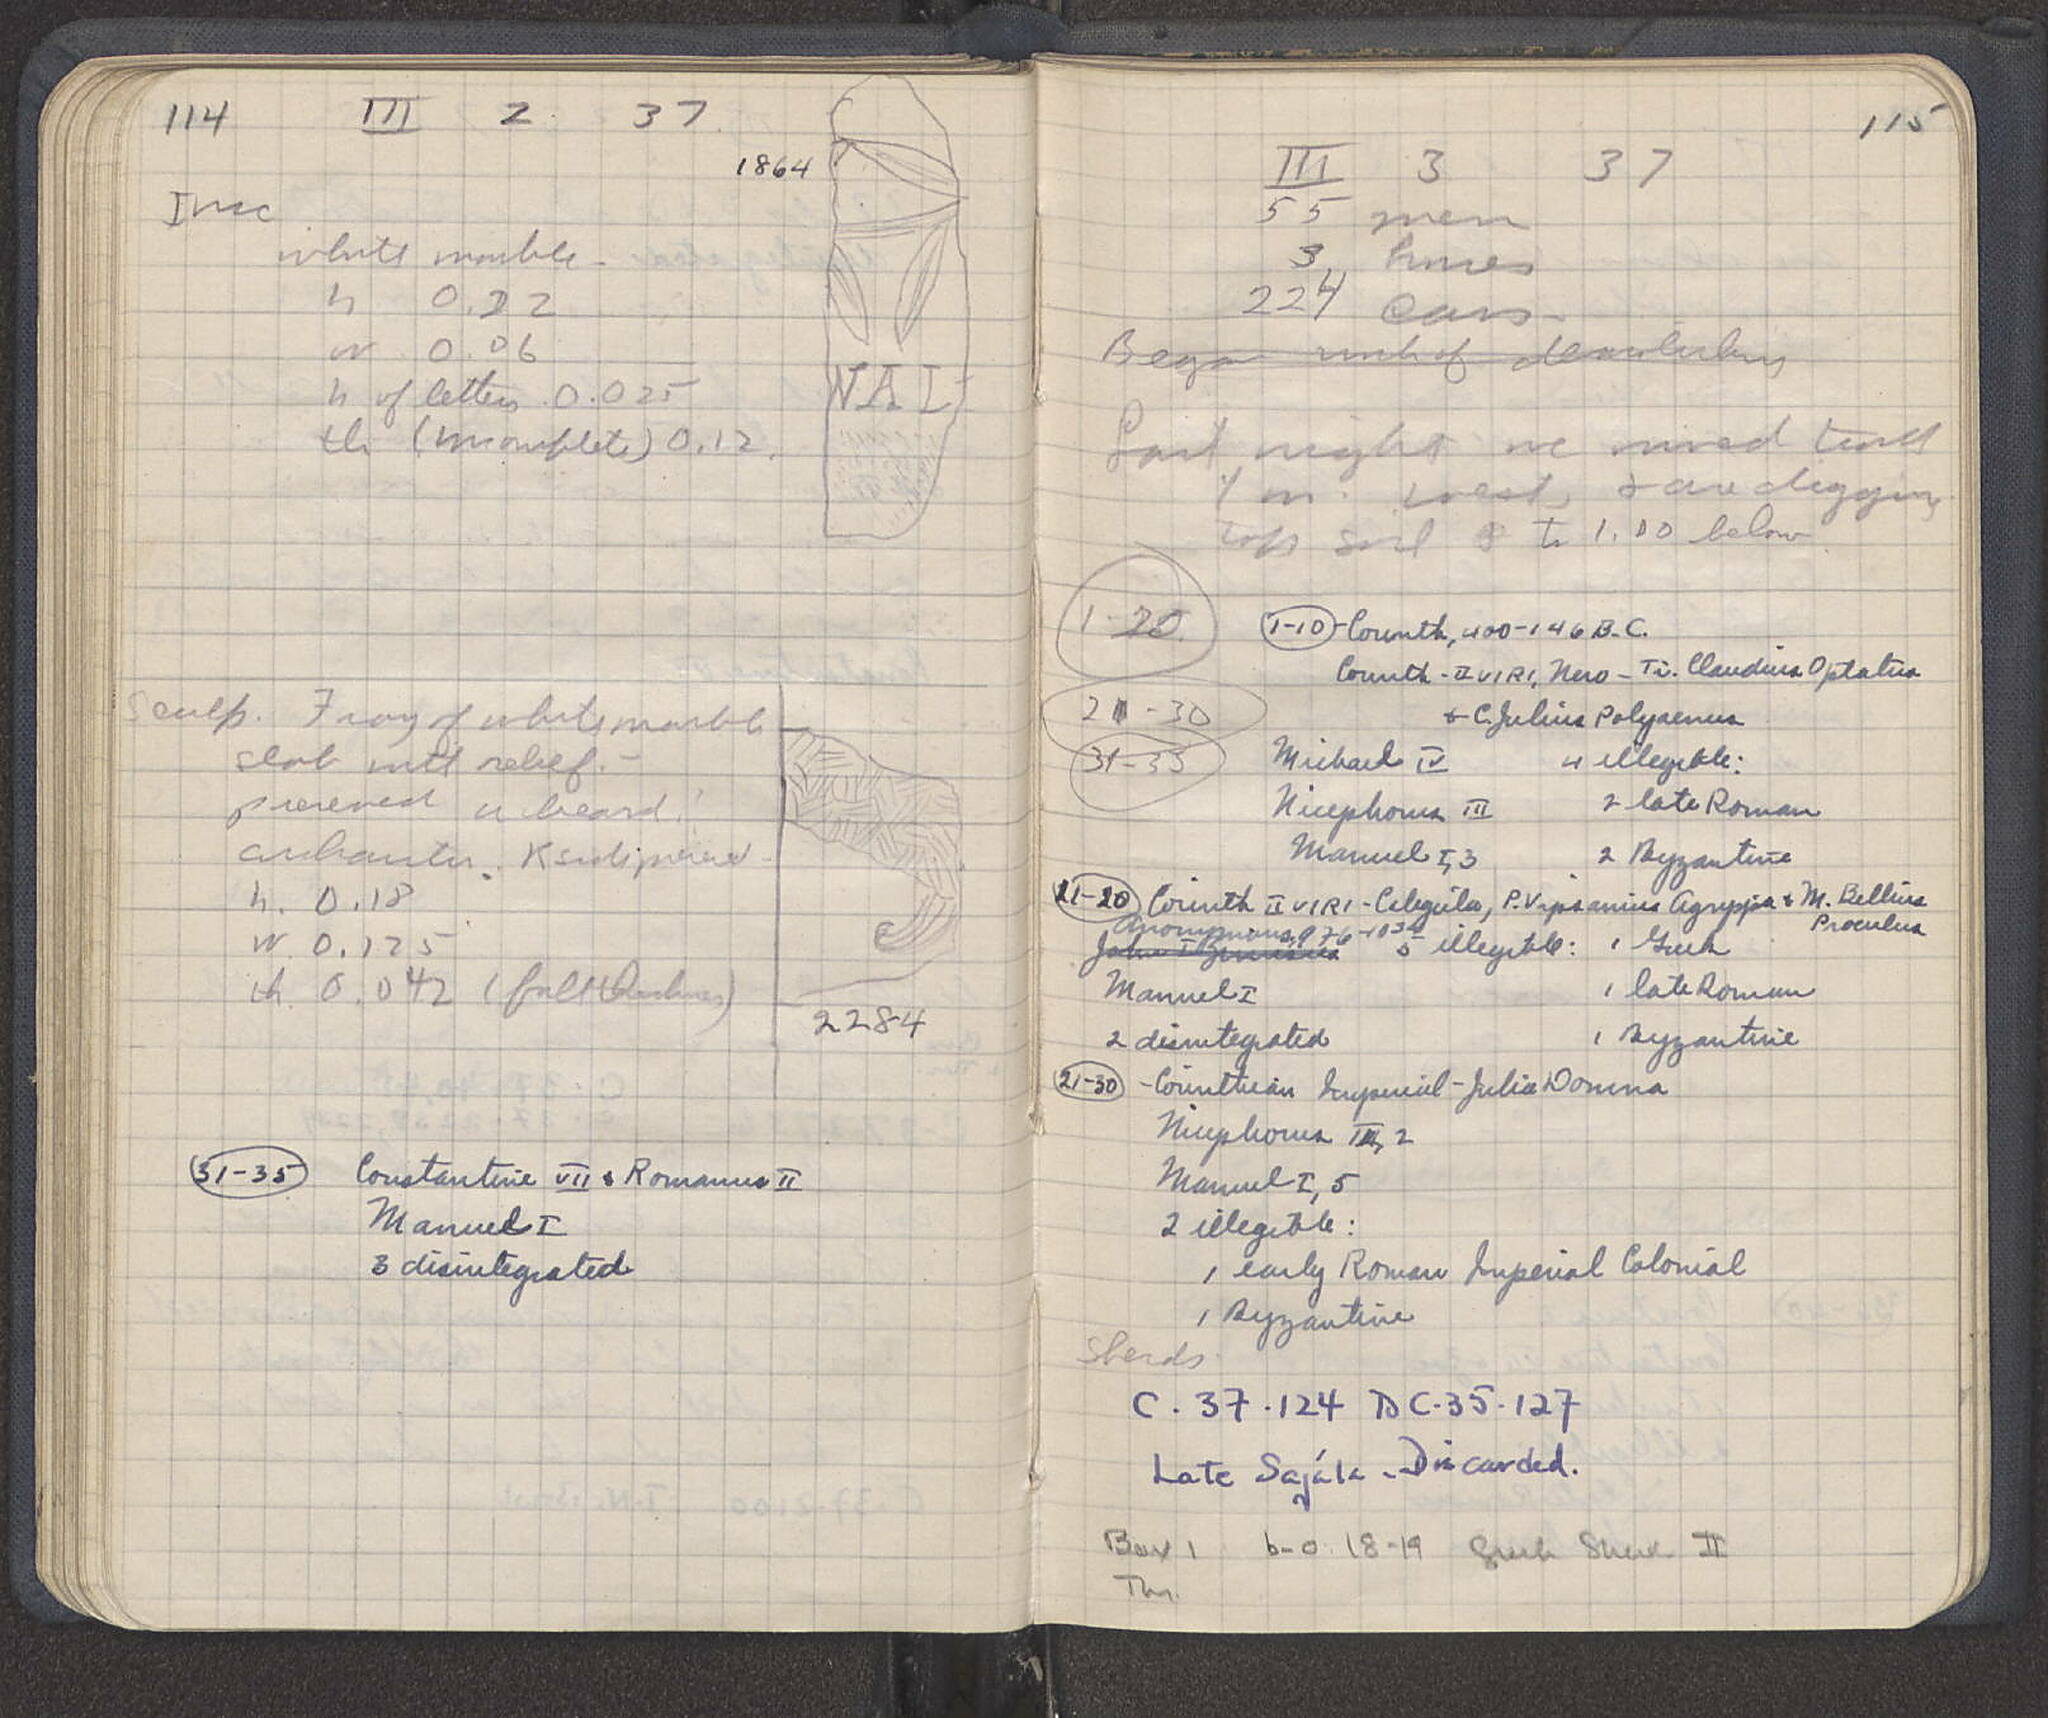 114 III 2 37
1864
Insc
white marble -
h 0.22
w 0.06
h of letters 0.025
th (incomplete) 0.12.
NAI
Sculp. Frag of white marble
slab with relief. -
preserved a beard.
h. 0.18
w 0.125
th 0.042 (full thickness)
2284
31-35 Constantine VII & Romanus II
Manuel I
3 disintegrated
115
III 3 37
55 men
3 horses
224 cars -
Began work of demolishing
Last night we moved track
1 m. west, & are digging
top soil to 1.00 below
1-20 1-10 - Corinth, 400-146 B.C.
Corinth - II VIRI, Nero - Ti. Claudius Optatus
& C. Julius Polyaenus
21-30
31-35 Michael IV 4 illegible:
Nicephorus III 2 late Roman
Manuel I, 3 2 Byzantine
11-20 Corinth II VIRI - Caligula, P. Vipsanius Agrippa & M. Bellius
Proculus
Anonymous, 976-1034
John I Zimisces 5 illegible: 1 Greek
Manuel I 1 late Roman
2 disintegrated 1 Byzantine
21-30 - Corinthian Imperial - Julia Domna
Nicephorus III, 2
Manuel I, 5
2 illegible:
1 early Roman Imperial Colonial
1 Byzantine
Sherds
C. 37. 124 C. 35. 127
Late - Discarded.
Box 1 b-o. 18-19 Greek II